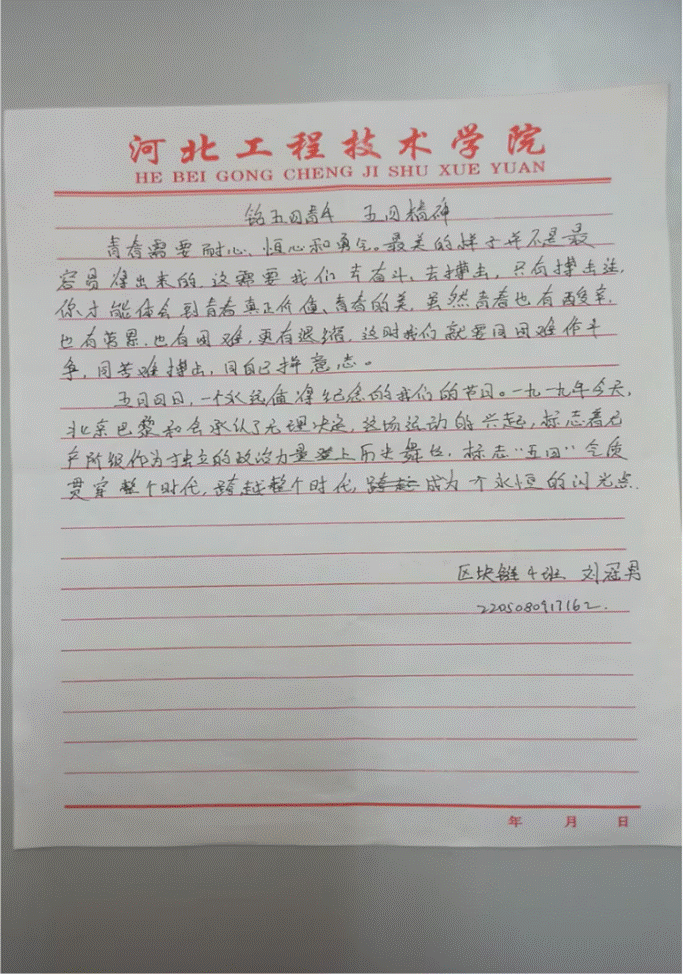 河北工程技术学院
HE BEI GONG CHENG JI SHU XUE YUAN
铭五四青年 五四精神
青春需要耐心、恒心和勇气。最美的样子并不是最
容易得出来的,这需要我们去奋斗、去搏击,只有搏击过,
你才能体会到青春真正价值、青春的美,虽然青春也有酸辛,
也有劳累,也有困难,更有退缩,这时我们就要同困难作斗
争,同苦难搏击,同自己拼意志。
五月四日,一个永远值得纪念的我们的节日。一九一九年今天,
北京巴黎和会承认了无理决定,这场运动的兴起,标志着无
产阶级作为独立的政治力量登上历史舞台,标志"五四"气质
贯穿整个时代,跨越整个时代,成为个永恒的闪光点.
区块链4班 刘冠男
2205080917162.
年 月 日